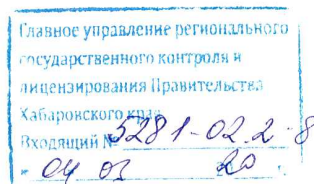 Главное управление регионального
государственного контроля и
лицензирования Правительства
Хабаровского края
Входящий № 5281-02.2-8
" 04 03 20